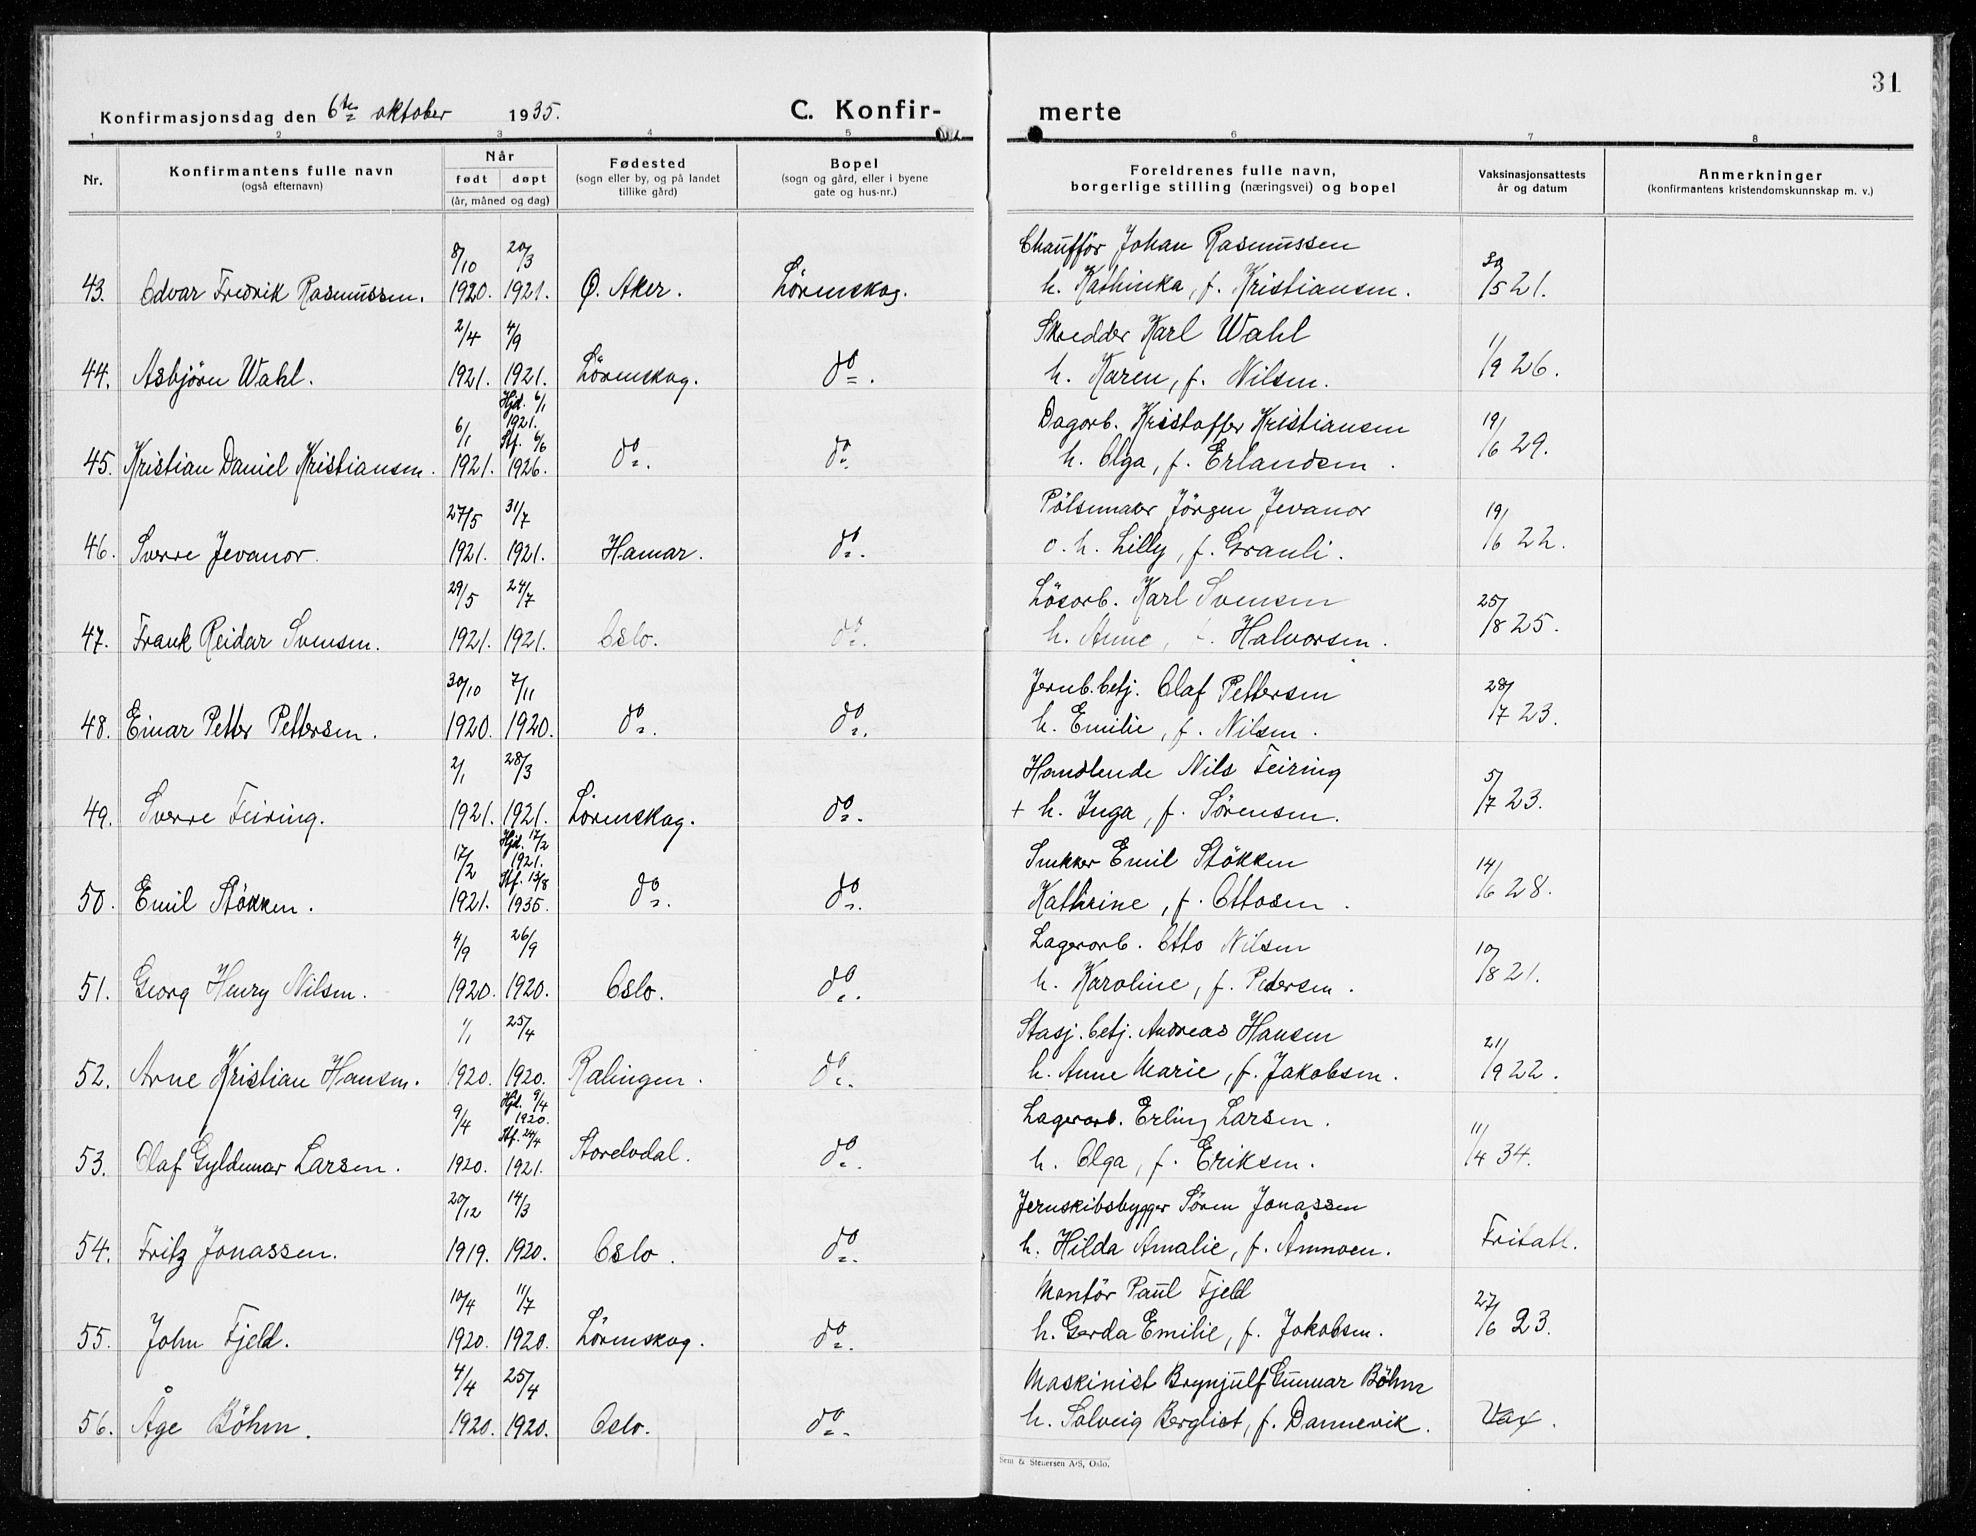 31
Konfirmasjonsdag den 6te oktober 1935. C. Konfirmerte
1 2 3 4 5 6 7 8
Nr. Konfirmantens fulle navn (også efternavn) Når født døpt (år, måned og dag) Fødested (sogn eller by, og på landet tillike gård) Bopel (sogn og gård, eller i byene gate og hus-nr.) Foreldrenes fulle navn, borgerlige stilling (næringsvei) og bopel Vaksinasjonsattests år og datum Anmerkninger (konfirmantens kristendomskunnskap m. v.)
8/10 20/3 Chaufför Johan Rasmussen 30
43. Edvar Fredrik Rasmussen. 1920. 1921. Ø. Aker. Lörenskog. h. Kathinka, f. Kristiansen. /5 21.
2/4 4/9 Skredder Karl Wahl
44. Asbjörn Wahl. 1921. 1921. Lörenskog. do. h. Karen, f. Nilsen. 11/9 26.
6/1 Hjd. 6/1 1921. Stf. 6/6 Dagarb. Kristoffer Kristiansen
45. Kristian Daniel Kristiansen. 1921. 1926. do. do. h. Olga, f. Erlandsen. 19/6 29.
27/5 31/7 Pölsemaker Jörgen Jevanor
46. Sverre Jevanor. 1921. 1921. Hamar. do. o. h. Lilly, f. Granli. 19/6 22.
29/5 24/7 Lösarb. Karl Svensen
47. Frank Reidar Svensen. 1921. 1921. Oslo. do. h. Anne, f. Halvorsen. 25/8 25.
30/10 7/11 Jernb.betj. Olaf Pettersen
48. Einar Petter Pettersen. 1920. 1920. do. do. h. Emilie, f. Nilsen. 28/7 23.
2/1 28/3 Handlende Nils Feiring
49. Sverre Feiring. 1921. 1921. Lörenskog. do. + h. Inga, f. Sörensen. 5/7 23.
17/2 Hjd. 17/2 1921. Stf. 13/8 Snekker Emil Stökken
50. Emil Stökken. 1921. 1935. do. do. Kathrine, f. Ottosen. 14/6 28.
4/9 26/9 Lagerarb. Otto Nilsen
51. Georg Henry Nilsen. 1920. 1920. Oslo. do. h. Karoline, f. Pedersen. 10/8 21.
1/1 25/4 Stasj.betj. Andreas Hansen
52. Arne Kristian Hansen. 1920. 1920. Ralingen. do. h. Anne Marie, f. Jakobsen. 21/9 22.
9/4 Hjd. 9/4 1920. Stf. 24/4 Lagerarb. Erling Larsen.
53. Olaf Gyldemar Larsen. 1920. 1921. Storelvdal. do. h. Olga, f. Eriksen. 11/4 34.
20/12 14/3 Jernskibsbygger Sören Jonassen
54. Fritz Jonassen. 1919. 1920. Oslo. do. h. Hilda Amalie, f. Åmnoen. Fritatt.
10/4 11/7 Montör Paul Fjeld
55. John Fjeld. 1920. 1920. Lörenskog. do. h. Gerda Emilie, f. Jakobsen. 27/6 23.
4/4 25/4 Maskinist Brynjulf Gunnar Böhm
56. Åge Böhm. 1920. 1920. Oslo. do. h. Solveig Bergliot, f. Dannevik. Vax.
Sem & Stenersen A/S, Oslo.